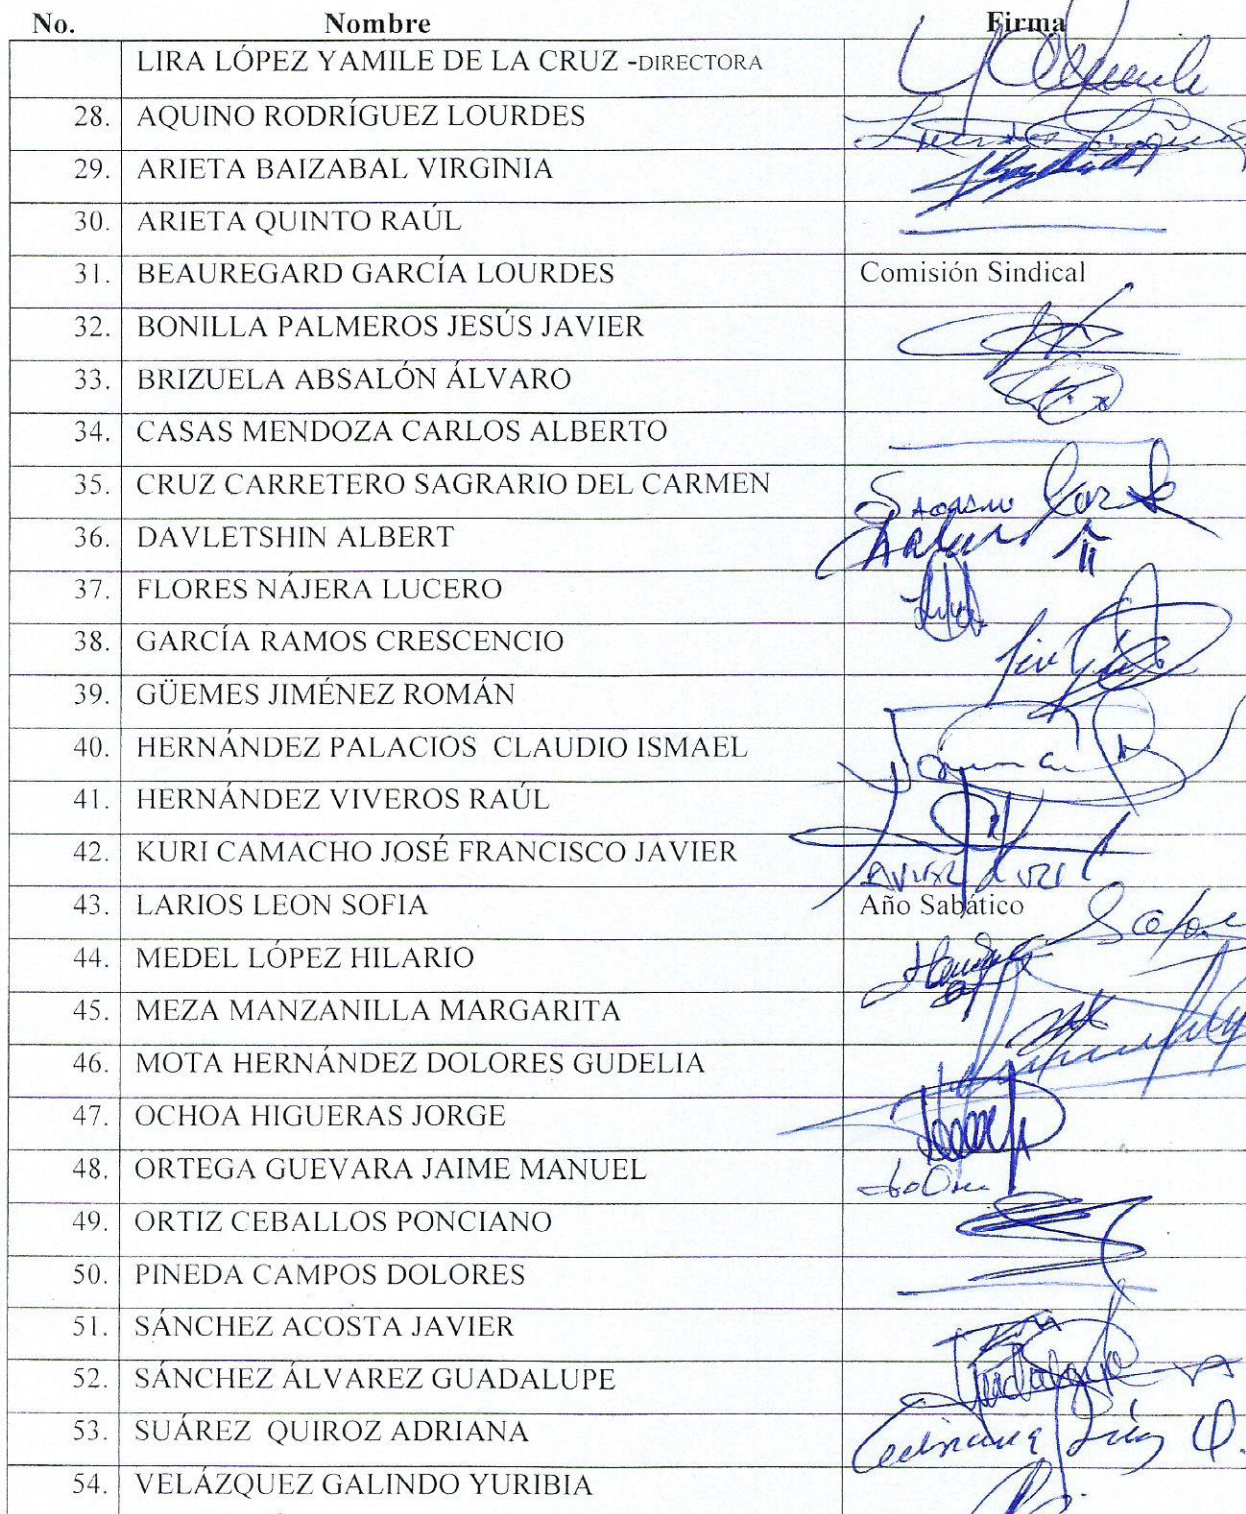 No. Nombre Firma
LIRA LÓPEZ YAMILE DE LA CRUZ -DIRECTORA
28. AQUINO RODRÍGUEZ LOURDES
29. ARIETA BAIZABAL VIRGINIA
30. ARIETA QUINTO RAÚL
31. BEAUREGARD GARCÍA LOURDES Comisión Sindical
32. BONILLA PALMEROS JESÚS JAVIER
33. BRIZUELA ABSALÓN ÁLVARO
34. CASAS MENDOZA CARLOS ALBERTO
35. CRUZ CARRETERO SAGRARIO DEL CARMEN
36. DAVLETSHIN ALBERT
37. FLORES NÁJERA LUCERO
38. GARCÍA RAMOS CRESCENCIO
39. GÜEMES JIMÉNEZ ROMÁN
40. HERNÁNDEZ PALACIOS CLAUDIO ISMAEL
41. HERNÁNDEZ VIVEROS RAÚL
42. KURI CAMACHO JOSÉ FRANCISCO JAVIER
43. LARIOS LEON SOFIA Año Sabático
44. MEDEL LÓPEZ HILARIO
45. MEZA MANZANILLA MARGARITA
46. MOTA HERNÁNDEZ DOLORES GUDELIA
47. OCHOA HIGUERAS JORGE
48. ORTEGA GUEVARA JAIME MANUEL
49. ORTIZ CEBALLOS PONCIANO
50. PINEDA CAMPOS DOLORES
51. SÁNCHEZ ACOSTA JAVIER
52. SÁNCHEZ ÁLVAREZ GUADALUPE
53. SUÁREZ QUIROZ ADRIANA
54. VELÁZQUEZ GALINDO YURIBIA